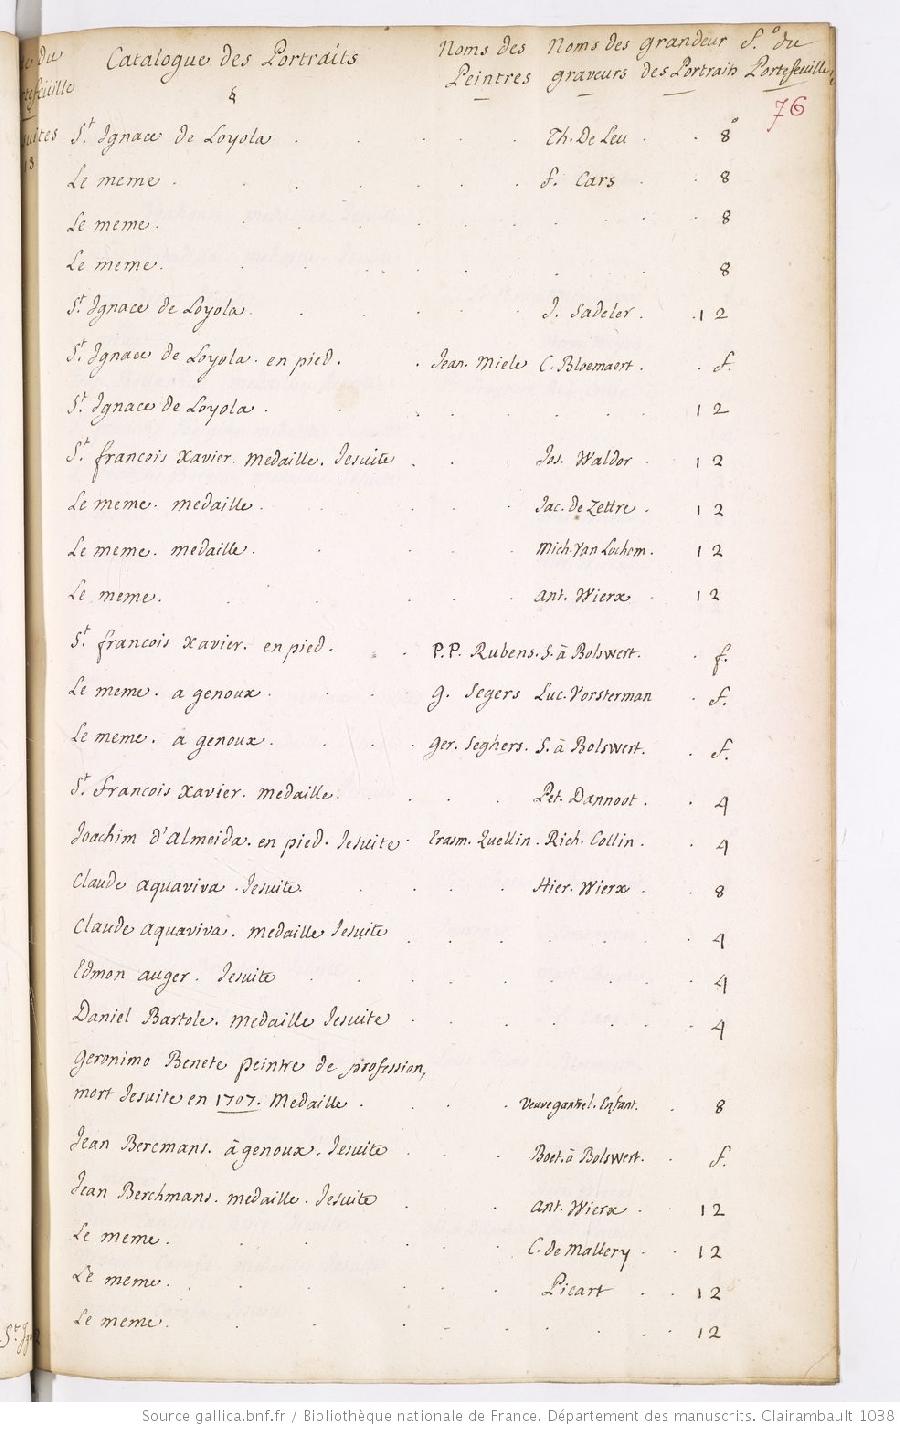 Catalogue des Portraits Noms des Peintres Noms des graveurs grandeur des Portraits f.o du Portefeuille
76
St Ignace de Loyola Th. De Leu 8o
Le meme f. Cars 8
Le meme. 8
Le meme. 8
St Ignace de Loyola J. Sadeler 12
St Ignace de Loyola. en pied. Jean. Miele C. Bloemaert. f.
St Ignace de Loyola 12
St françois Xavier. medaille. Jesuite Jos. Waldor 12
Le meme. medaille. Jac. de Zettre. 12
Le meme. medaille. Mich. Van Lochom. 12
Le meme. Ant. Wierx 12
St françois Xavier. en pied. P.P. Rubens. S. à Bolswert. f.
Le meme. a genoux. G. Segers Luc. Vorsterman f.
Le meme. a genoux. Ger. Seghers. S. à Bolswert. f.
St François Xavier. medaille Pet. Dannoot. 4
Joachim d'Almeida. en pied. Jesuite Erasm. Quellin. Rich. Collin. 4
Claude aquaviva. Jesuite. Hier. Wierx 8
Claude aquaviva. medaille Jesuite 4
Edmon auger. Jesuite 4
Daniel Bartole. medaille Jesuite 4
Geronimo Benete peintre de profession,
mort Jesuite en 1707. Medaille. Veuve gantrel. Enfant. 8
Jean Bercmans. à genoux. Jesuite Boet. à Bolswert. f.
Jean Berchmans. medaille. Jesuite Ant. Wierx 12
Le meme. C. de Mallery 12
Le meme. Picart 12
Le meme. 12
Source gallica.bnf.fr / Bibliothèque nationale de France. Département des manuscrits. Clairambault 1038